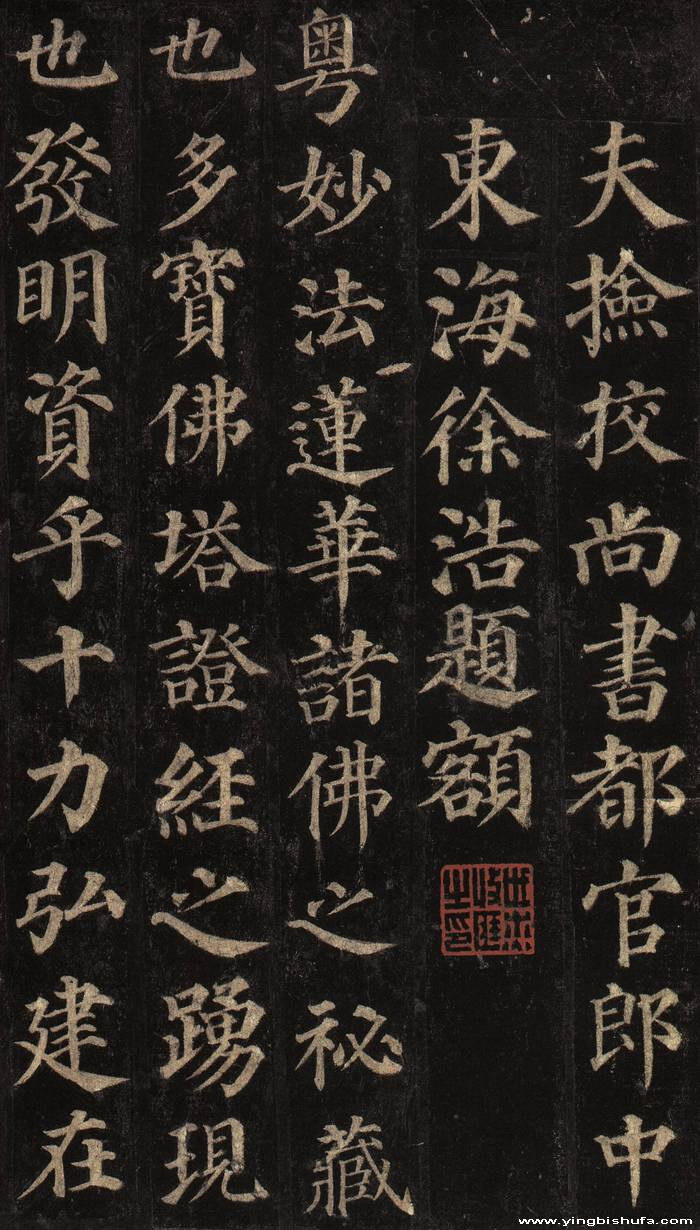 夫撿挍尚書都官郎中
東海徐浩題額
粤妙法蓮華諸佛之祕藏
也多寶佛塔證經之踴現
也發明資乎十力弘建在
www.yingbishufa.com